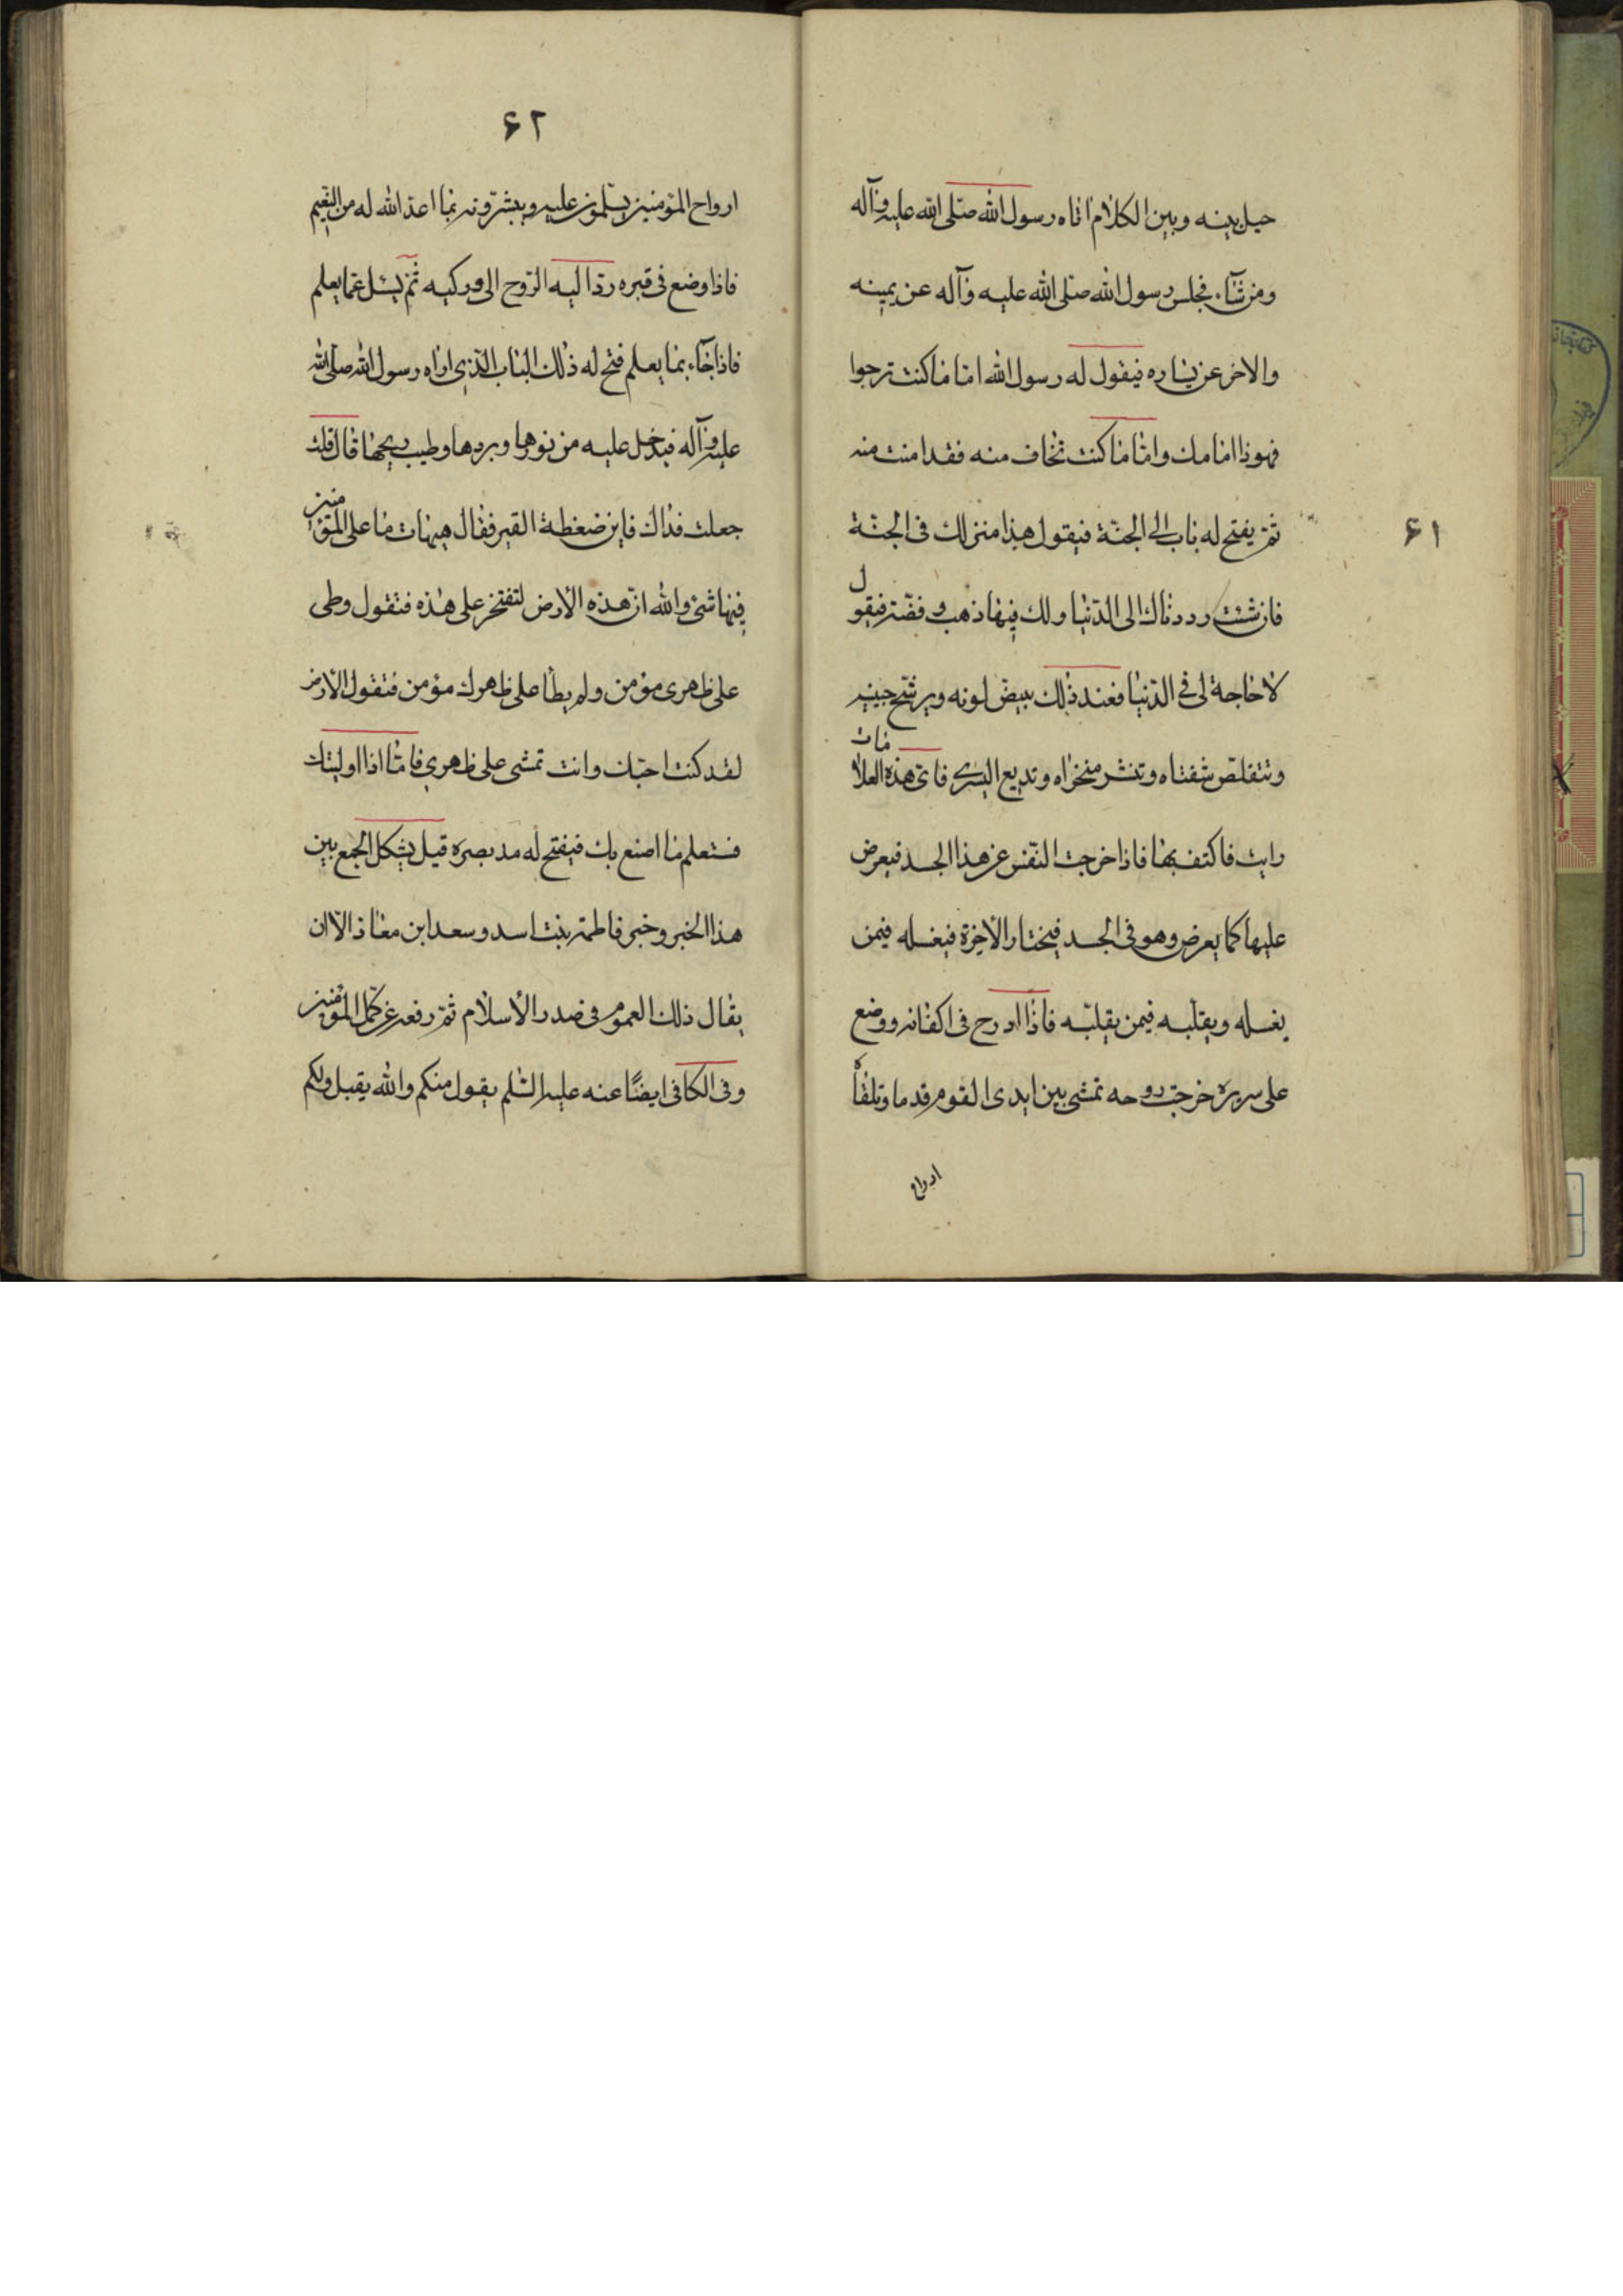 حيل بينه وبين الكلام اتاه رسول الله صلّى الله عليه وآله
ومن شآء فجلس رسول الله صلّى الله عليه وآله عن يمينه
والاخر عن يساره فيقول له رسول الله امّا ما كنت ترجوا
فهوذا امامك وامّا ما كنت تخاف منه فقد امنت منه
ثمّ يفتح له باب الى الجنّة فيقول هذا منزلك فى الجنّة
۶۱
فان شئت رددناك الى الدّنيا ولك فيها ذهب وفضّة فيقول
لا حاجة لى فى الدّنيا فعند ذلك يبيضّ لونه ويرشح جبينه
وتتقلّص شفتاه وتنشر منخراه وتدمع اليسرى فاىّ هذه العلامات
رايت فاكتف بها فاذا خرجت النّفس عن هذا الجسد فيعرض
عليها كما يعرض وهو فى الجسد فيختار الأخرة فيغسله فيمن
يغسله ويقلّبه فيمن يقلّبه فاذا ادرج فى اكفانه ووضع
على سريره خرجت روحه تمشى بين ايدى القوم قدما وتلقاه
ارواح
۶۲
ارواح المؤمنين يسلّمون عليه ويبشّرونه بما اعدّ الله له من النّعيم
فاذا وضع فى قبره ردّ اليه الرّوح الى وركيه ثمّ يسئل عمّا يعلم
فاذا جآء بما يعلم فتح له ذلك الباب الّذى اراه رسول الله صلّى الله
عليه وآله فيدخل عليه من نورها وبردها وطيب ريحها قال قلت
جعلت فداك فاين ضغطة القبر فقال هيهات ما على المؤمنين
فيها شئ والله انّ هذه الأرض لتفتخر على هذه فتقول وطى
على ظهرى مؤمن ولم يطأ على ظهرك مؤمن فتقول الأرض
لقد كنت احبّك وانت تمشى على ظهرى فامّا اذا اوليتك
فستعلم ما اصنع بك فيفتح له مد بصره قيل يشكل الجمع بين
هذا الخبر وخبر فاطمة بنت اسد وسعد ابن معاذ الّا ان
يقال ذلك العموم فى صدر الأسلام ثمّ رفعه عن كمّل المؤمنين
وفى الكافى ايضًا عنه عليه السّلم يقول منكم والله يقبل ولكم